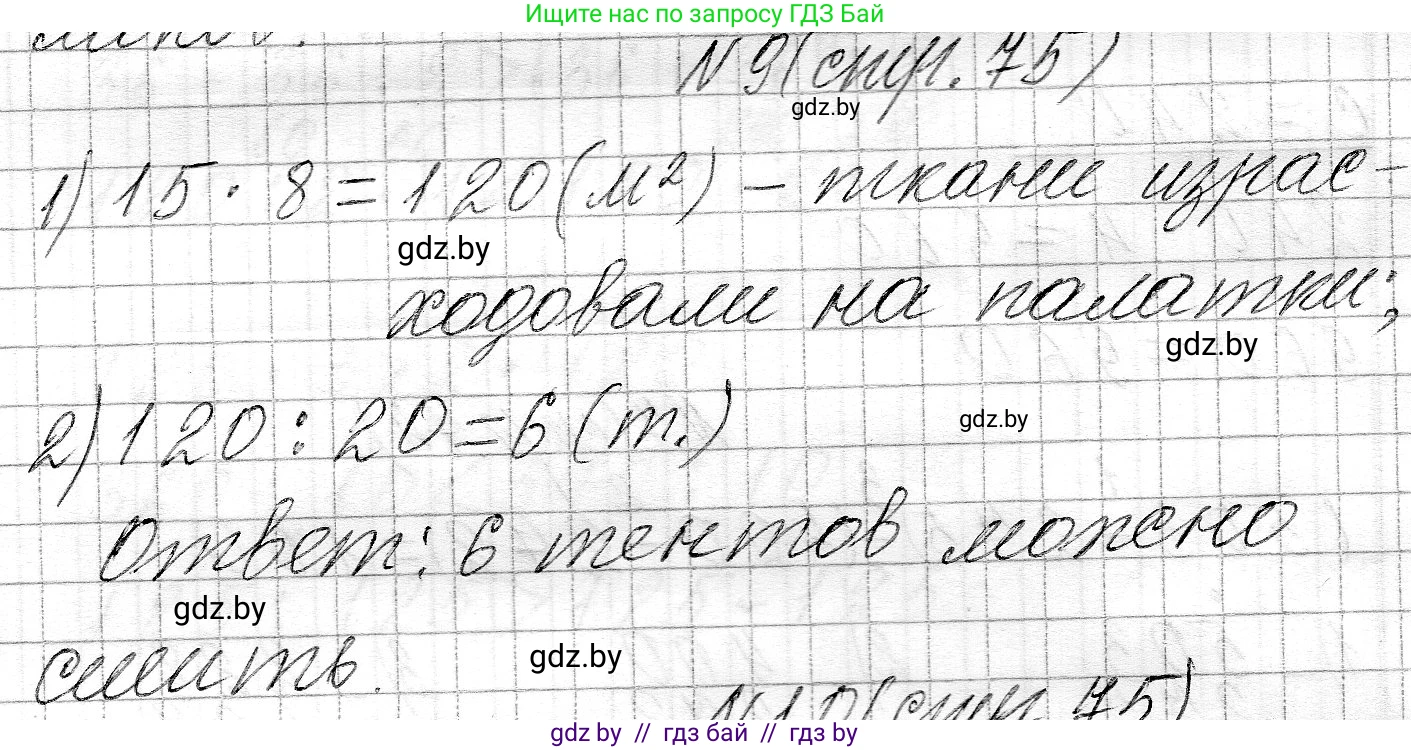 Ищите нас по запросу ГДЗ Бай
N 9 (стр. 75)
gdz.by
1) 15 · 8 = 120 (м²) – ткани израс-
gdz.by
ходовали на палатки;
gdz.by
2) 120 : 20 = 6 (т.)
gdz.by
Ответ: 6 тентов можно
gdz.by
сшить.
gdz.by
N10 (стр. 75)
gdz.by // гдз бай // гдз by